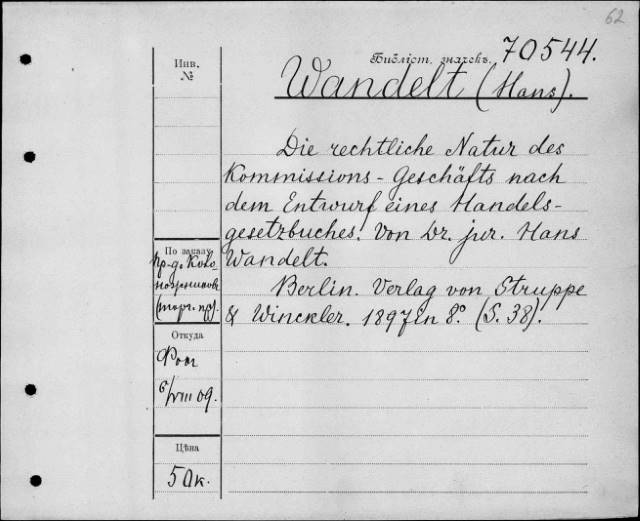 62
Инв.
№
Библіот. значекъ. 70544.
Wandelt (Hans).
Die rechtliche Natur des
Kommissions-Geschäfts nach
dem Entwurf eines Handels-
gesetzbuches. Von Dr. jur. Hans
Wandelt.
Berlin. Verlag von Struppe
& Winckler. 1897 in 8º. (S. 38).
По заказу
пр-д.
(торг. пр).
Откуда
Фоог
6/VIII 09.
Цѣна
50к.